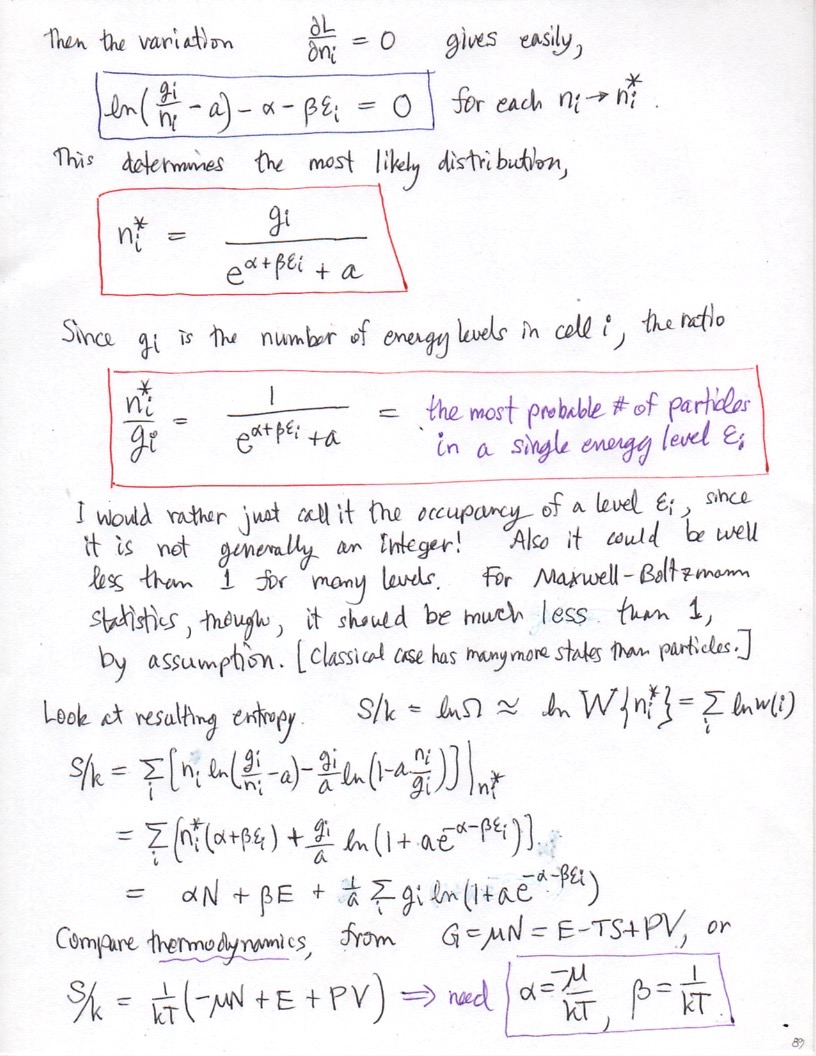 Then the variation ∂L/∂ni = 0 gives easily,
ln(gi/ni - a) - α - βεi = 0 for each ni → ni*.
This determines the most likely distribution,
ni* = gi / (e^(α+βεi) + a)
Since gi is the number of energy levels in cell i, the ratio
ni*/gi = 1 / (e^(α+βεi) + a) = the most probable # of particles
in a single energy level εi
I would rather just call it the occupancy of a level εi, since
it is not generally an integer! Also it could be well
less than 1 for many levels. For Maxwell-Boltzmann
statistics, though, it should be much less than 1,
by assumption. [Classical case has many more states than particles.]
Look at resulting entropy. S/k = lnΩ ≈ ln W{ni*} = Σi ln w(i)
S/k = Σi [ni ln(gi/ni - a) - gi/a ln(1 - a ni/gi)]|ni*
= Σi [ni*(α+βεi) + gi/a ln(1 + ae^(-α-βεi))]
= αN + βE + 1/a Σi gi ln(1+ae^(-α-βεi))
Compare thermodynamics, from G = μN = E - TS + PV, or
S/k = 1/kT (-μN + E + PV) ⇒ need α = -μ/kT, β = 1/kT.
89